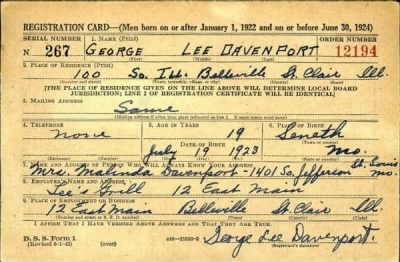 REGISTRATION CARD—(Men born on or after January 1, 1922 and on or before June 30, 1924)
SERIAL NUMBER 1. NAME (Print) ORDER NUMBER
N 267 GEORGE LEE DAVENPORT 12194
(First) (Middle) (Last)
2. PLACE OF RESIDENCE (Print)
100 So. Ill. Belleville St. Clair Ill.
(Number and street) (Town, township, village or city) (County) (State)
[THE PLACE OF RESIDENCE GIVEN ON THE LINE ABOVE WILL DETERMINE LOCAL BOARD
JURISDICTION; LINE 2 OF REGISTRATION CERTIFICATE WILL BE IDENTICAL]
3. MAILING ADDRESS
Same
(Mailing address if other than place indicated on line 2. If same insert word same)
4. TELEPHONE 5. AGE IN YEARS 6. PLACE OF BIRTH
none 19 Seneth
DATE OF BIRTH
July 19 1923 Mo.
(Exchange) (Number) (Mo.) (Day) (Yr.) (State or country)
7. NAME AND ADDRESS OF PERSON WHO WILL ALWAYS KNOW YOUR ADDRESS
Mrs. Malinda Davenport - 1401 So. Jefferson St. Louis Mo.
8. EMPLOYER'S NAME AND ADDRESS
Lee's Grill 12 East Main
9. PLACE OF EMPLOYMENT OR BUSINESS
12 East Main Belleville St Clair Ill.
(Number and street or R. F. D. number) (Town) (County) (State)
I AFFIRM THAT I HAVE VERIFIED ABOVE ANSWERS AND THAT THEY ARE TRUE.
D. S. S. Form 1
(Revised 6-1-42) George Lee Davenport.
(Registrant's signature)